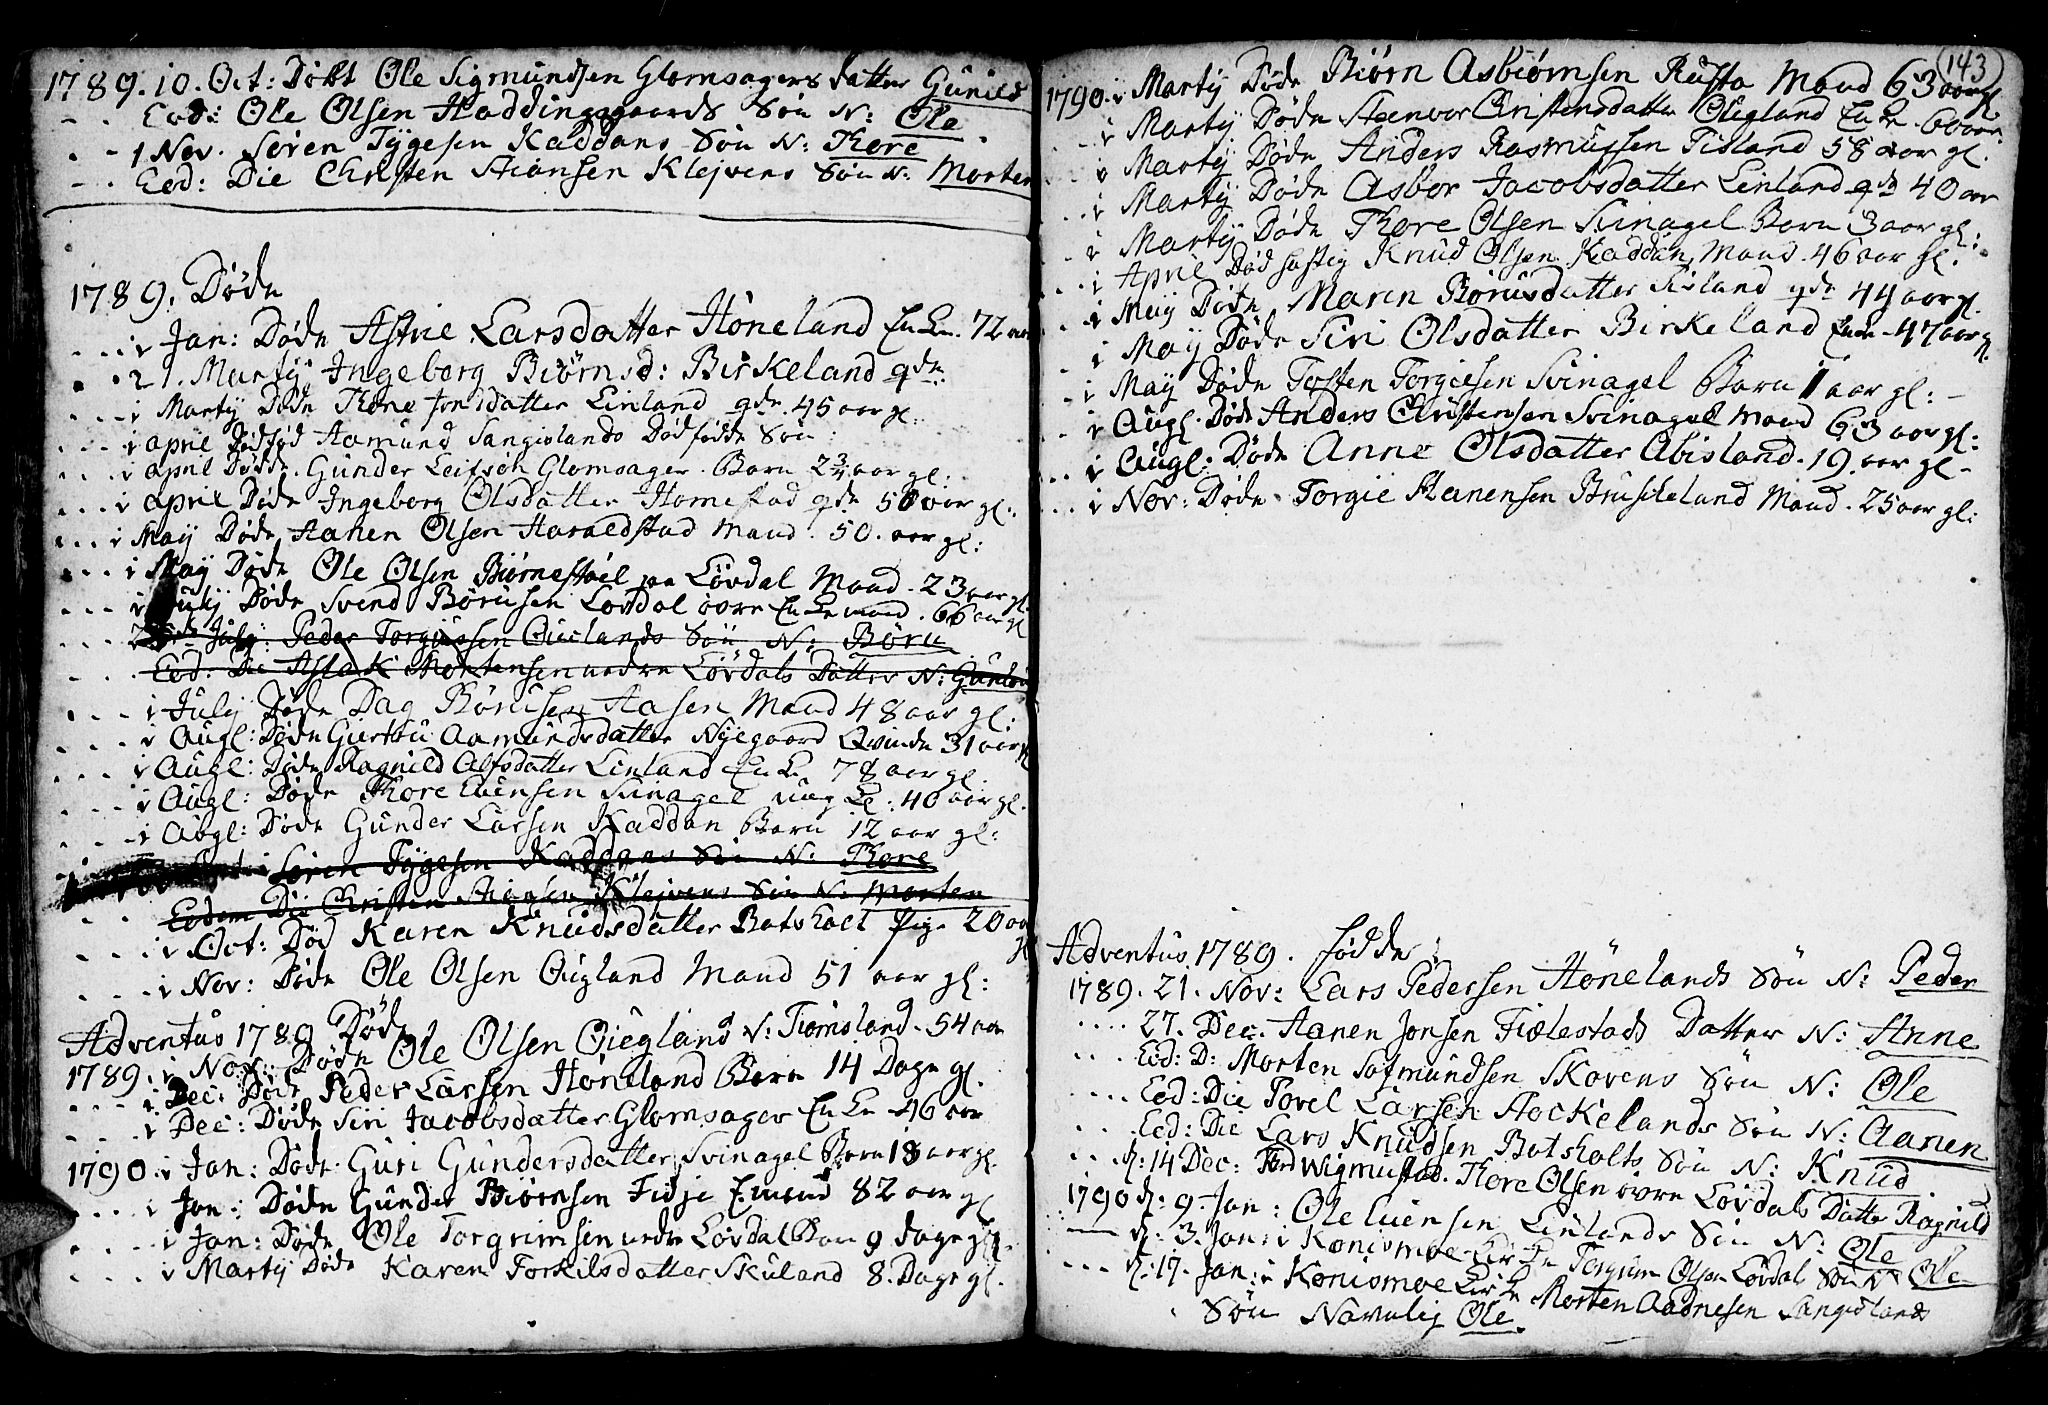 1789. 10. Oct: Døbt Ole Sigmundsen Glomsagers datter Gunild
Eod: Ole Olsen Haddingsgaards Søn N: Ole
1 Nov. Søren Tygesen Kaddans Søn N: Thore
Eod: Die Christen Stiansen Klejvens Søn N: Morten
1789. Døde
i Jan: Døde Astrie Larsdatter Høneland Enke 72 aar
21. Martÿ Ingeborg Biørnsd: Birkeland gde
i Martÿ Døde Thone Jonsdatter Linland gde 45 aar gl:
i april Dødfød Aamund Sangislands Dødfødde Søn
i april Dødde Gunder Leifsøn Glomsager. Barn 2 3/4 aar gl:
i april Døde Ingeborg Olsdatter Homestad gde 50 aar gl:
i Maÿ Døde Aanen Olsen Haraldstad Mand. 50. aar gl:
i Maÿ Døde Ole Olsen Biørnestøel Løvdal Mand. 23 aar gl.
i Julÿ Døde Svend Børusen Løvdal øvre Enkemand. 66 aar gl
Julÿ: Peder Torgiussen Ouglands Søn N: Børu
Eod: Die Aslak Mortensen nedre Løvdals Datter N: Gunløu
i Julÿ Døde Dag Børusen Aasen Mand 48 aar gl:
i Augl: Døde Giertru Aamundsdatter Nÿegaard Qvinde 31 aar gl
i Augl: Døde Ragnild Alfsdatter Linland Enke 78 aar gl.
i Augl: Døde Thore Evensen Svinagel ung K: 40 aar gl.
i Augl: Døde Gunder Larsen Kaddan Barn 12 aar gl:
Søren Tÿgesen Kaddans Søn N: Thore
Eodem Die Christen Stiansen Klejvens Søn N: Morten
i Oct: Død Karen Knudsdatter Batsholt Pige 20 aar gl
i Nov: Døde Ole Olsen Ougland Mand 51 aar gl:
Adventus 1789 Døde
1789. i Nov: Døde Ole Olsen Øiegland N: Tiomsland. 54 aar
i Dec: Døde Peder Larsen Høneland Barn 14 Dage gl.
i Dec: Døde Siri Jacobsdatter Glomsager Enke 46 aar
1790 i Jan: Døde Guri Gundersdatter Svinagel Barn 18 aar gl.
i Jan: Døde Gunder Biørnsen Fidje Emand 82 aar gl
i Jan: Døde Ole Torgrimsen nedre Løvdal Barn 9 dage gl.
i Martÿ Døde Karen Torkilsdatter Skuland 8. Dage gl.
143
1790. i Martÿ Døde Biørn Asbiørnsen Rusta Mand 63 aar gl
i Martÿ Døde Steenvor Christensdatter Øiegland Enke. 60 aar
i Martÿ Døde Anders Rasmussen Tisland 58 aar gl.
i Martÿ Døde Asbor Jacobsdatter Linland gde 40 aar
i Martÿ Døde Thore Olsen Svinagel Barn 3 aar gl:
i April Død hastig Knud Olsen Kaddan, Mand. 46 aar gl:
i Maÿ Døde Maren Børusdatter Tisland gde 44 aar gl.
i Maÿ Døde Siri Olsdatter Birkeland Enke - 47 aar gl.
i Maÿ Døde Tosten Torgiesen Svinagel Barn 1 aar gl:
i Augl. Døde Anders Christensen Svinagel Mand 63 aar gl:
i Augl: Døde Anne Olsdatter Abisland. 19. aar gl
i Nov: Døde Torgie Aanensen Bruskeland Mand. 25 aar gl:
Adventus 1789. fødde:
1789. 21. Nov: Lars Pedersen Hønelands Søn N: Peder
27. Dec. Aanen Jonsen Fiælestads Datter N: Anne
Eod: D: Morten Sofmundsen Skovens Søn N: Ole
Eod: Die Povel Larsen Hockelands Søn N: Aanen
Eod: Die Lars Knudsen Batsholts Søn N: Knud
d: 14 Dec: Wigmustad. Thore Olsen øvre Løvdals Datter Ragnild
1790 d: 9. Jan: Ole Evensen Linlands Søn N: Ole
d: 3. Jan: i Konismoe Kirke Torgrim Olsen Løvdal Søn N: Ole
d: 17. Jan: i Konismoe Kirke Morten Aadnesen Sangislands
Søn Navnlig Ole.